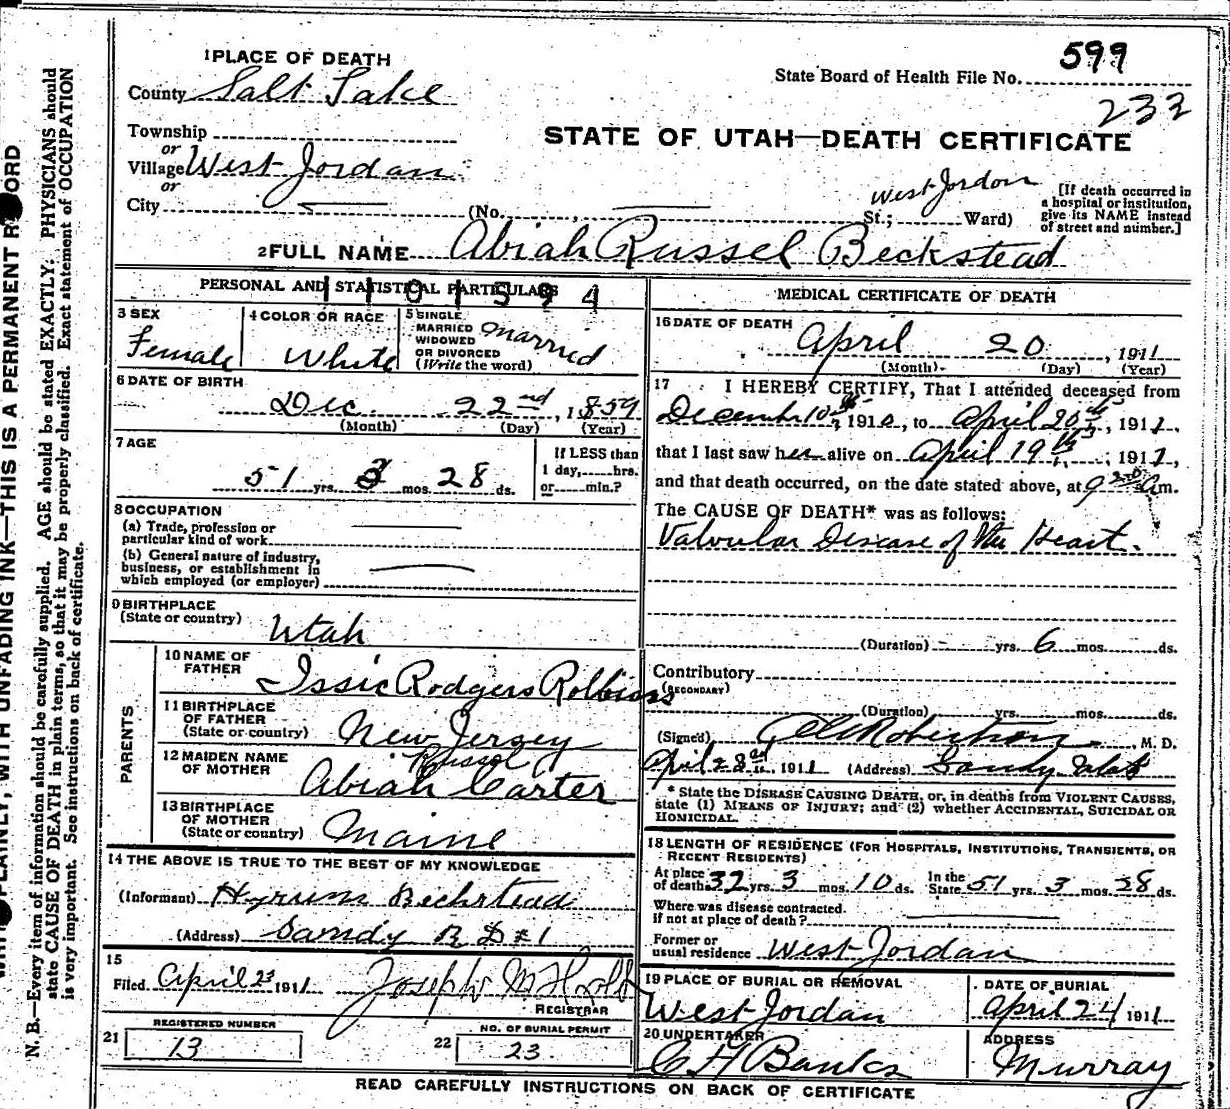 1 PLACE OF DEATH
County Salt Lake
Township
or
Village West Jordan
or
City (No. St.; Ward)
West Jordan
State Board of Health File No. 599
232
STATE OF UTAH—DEATH CERTIFICATE
[If death occurred in
a hospital or institution,
give its NAME instead
of street and number.]
2 FULL NAME Abiah Russel Beckstead
PERSONAL AND STATISTICAL PARTICULARS
1101594
3 SEX
Female
4 COLOR OR RACE
White
5 SINGLE
MARRIED
WIDOWED
OR DIVORCED
(Write the word)
Married
6 DATE OF BIRTH
Dec. 22nd, 1859
(Month) (Day) (Year)
7 AGE
51 yrs. 3 mos. 28 ds.
If LESS than
1 day, hrs.
or min.?
8 OCCUPATION
(a) Trade, profession or
particular kind of work
(b) General nature of industry,
business, or establishment in
which employed (or employer)
9 BIRTHPLACE
(State or country)
Utah
PARENTS
10 NAME OF
FATHER
Issic Rodgers Robbins
11 BIRTHPLACE
OF FATHER
(State or country)
New Jersey
12 MAIDEN NAME
OF MOTHER
Russel
Abiah Carter
13 BIRTHPLACE
OF MOTHER
(State or country)
Maine
14 THE ABOVE IS TRUE TO THE BEST OF MY KNOWLEDGE
(Informant) Hyrum Beckstead
(Address) Sandy R D #1
15
Filed April 23 1911 Joseph M Holt
REGISTRAR
21 REGISTERED NUMBER
13
22 NO. OF BURIAL PERMIT
23
MEDICAL CERTIFICATE OF DEATH
16 DATE OF DEATH
April 20, 1911
(Month) (Day) (Year)
17 I HEREBY CERTIFY, That I attended deceased from
December 10th 1910, to April 20th, 1911,
that I last saw her alive on April 19th, 1911,
and that death occurred, on the date stated above, at 9 a.m.
The CAUSE OF DEATH* was as follows:
Valvular Disease of the Heart.
(Duration) yrs. 6 mos. ds.
Contributory
(SECONDARY)
(Duration) yrs. mos. ds.
(Signed) Robertson M. D.
April 28, 1911 (Address) Sandy Utah
* State the DISEASE CAUSING DEATH, or, in deaths from VIOLENT CAUSES,
state (1) MEANS OF INJURY; and (2) whether ACCIDENTAL, SUICIDAL OR
HOMICIDAL.
18 LENGTH OF RESIDENCE (FOR HOSPITALS, INSTITUTIONS, TRANSIENTS, OR
RECENT RESIDENTS)
At place of death 32 yrs. 3 mos. 10 ds. In the State 51 yrs. 3 mos. 28 ds.
Where was disease contracted.
if not at place of death?
Former or
usual residence West Jordan
19 PLACE OF BURIAL OR REMOVAL
West Jordan
DATE OF BURIAL
April 24 1911
20 UNDERTAKER
C H Banks
ADDRESS
Murray
READ CAREFULLY INSTRUCTIONS ON BACK OF CERTIFICATE
PLAINLY, WITH UNFADING INK—THIS IS A PERMANENT RECORD
N. B.—Every item of information should be carefully supplied. AGE should be stated EXACTLY. PHYSICIANS should
state CAUSE OF DEATH in plain terms, so that it may be properly classified. Exact statement of OCCUPATION
is very important. See instructions on back of certificate.